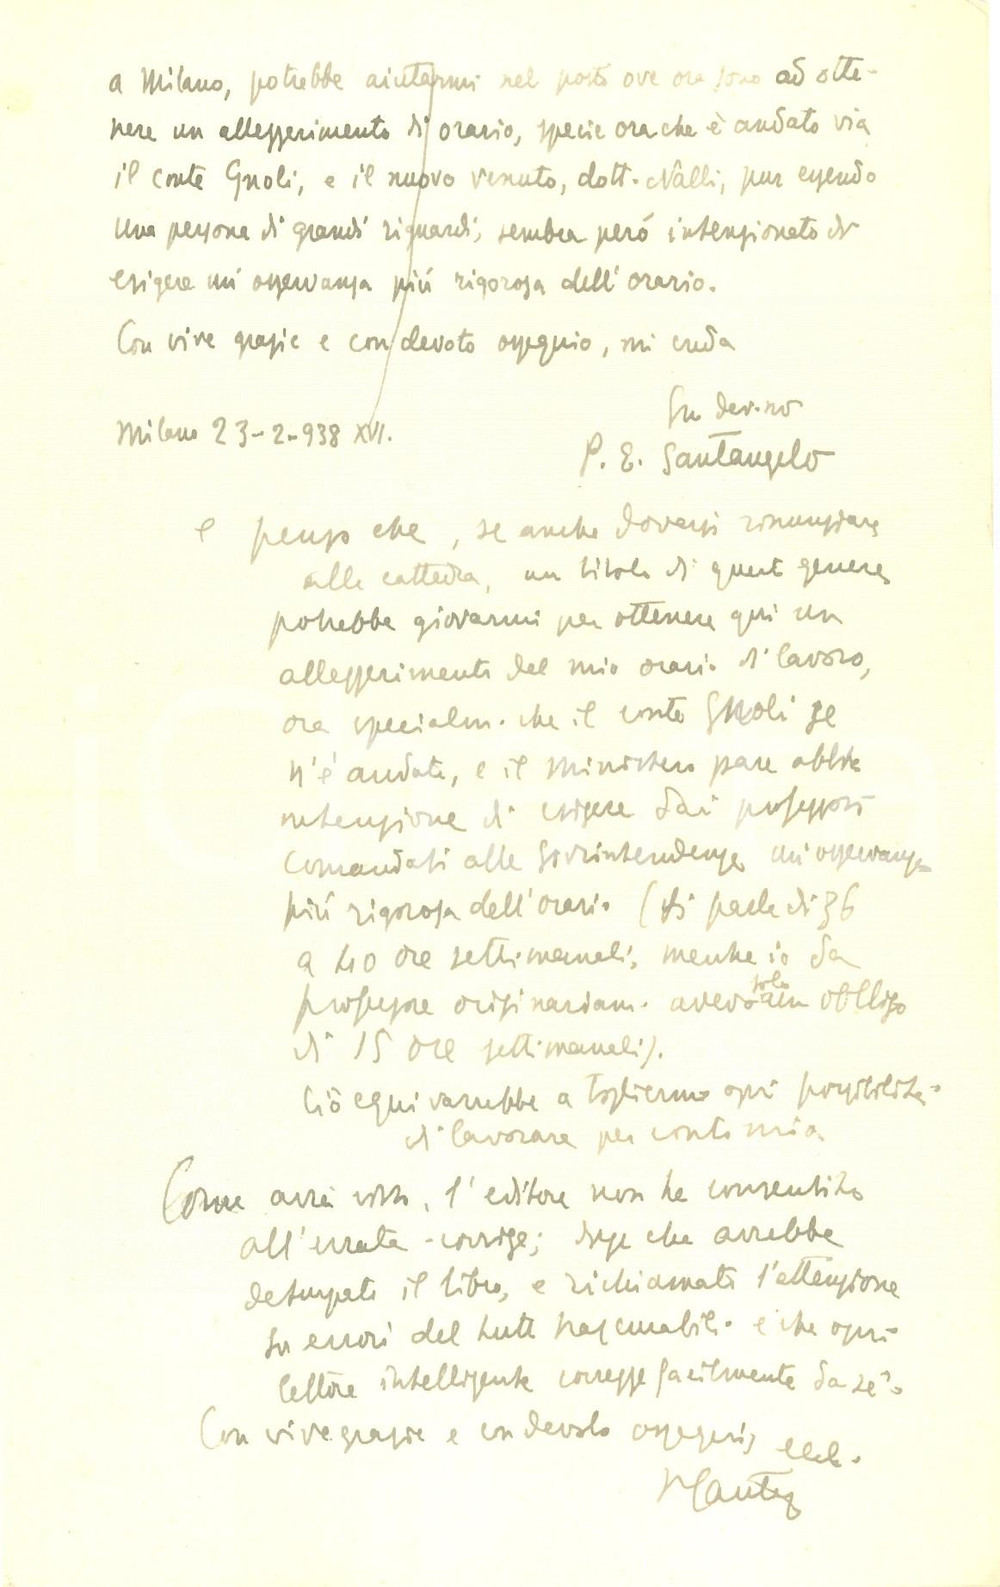 a Milano, potrebbe aiutarmi nel posto ove ora sono ad otte-
nere un alleggerimento di orario, specie ora che è andato via
il conte Gnoli, e il nuovo venuto, dott. Nalli, pur essendo
una persona di grandi riguardi, sembra però intenzionato di
esigere un'osservanza più rigorosa dell'orario.
Con vive grazie e con devoto ossequio, mi creda
Suo dev.mo
Milano 23-2-938 XVI.
P. E. Santangelo
e penso che, se anche dovessi rinunziare
alla cattedra, un titolo di questo genere
potrebbe giovarmi per ottenere qui un
alleggerimento del mio orario di lavoro,
ora specialm. che il conte Gnoli se
n'è andato, e il Ministero pare abbia
intenzione di esigere dai professori
comandati alle Sovrintendenze un'osservanza
più rigorosa dell'orario (si parla di 36
a 40 ore settimanali, mentre io da
professore originariam. avevo solo un obbligo
di 15 ore settimanali).
Ciò equivarrebbe a togliermi ogni possibilità
di lavorare per conto mio.
Come avrà visto, l'editore non ha consentito
all'errata-corrige; disse che avrebbe
deturpato il libro, e richiamato l'attenzione
su errori del tutto trascurabili e che ogni
lettore intelligente corregge facilmente da sé.
Con vive grazie e con devoto ossequio,